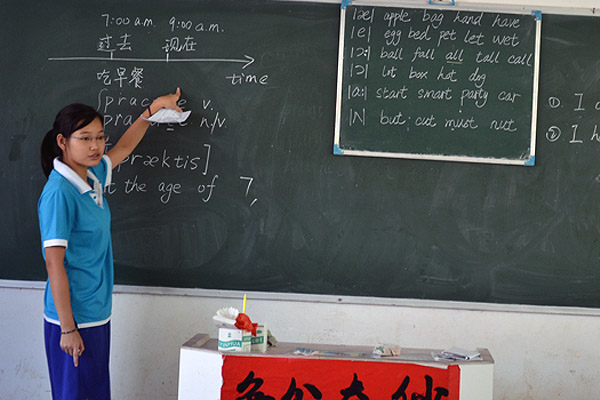 7:00 a.m. 9:00 a.m.
过去 现在
time
吃早餐
v.
n./v.
præktis]
the age of 7,
|æ| apple bag hand have
|e| egg bed pet let wet
|ɔ:| ball fall all tall call
|ɔ| lot box hot dog
|a:| start smart party car
|ʌ| but cut must nut
①. I
② I